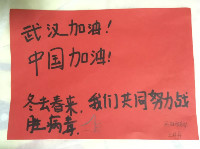 武汉加油!
中国加油!
冬去春来,我们共同努力战
胜病毒.